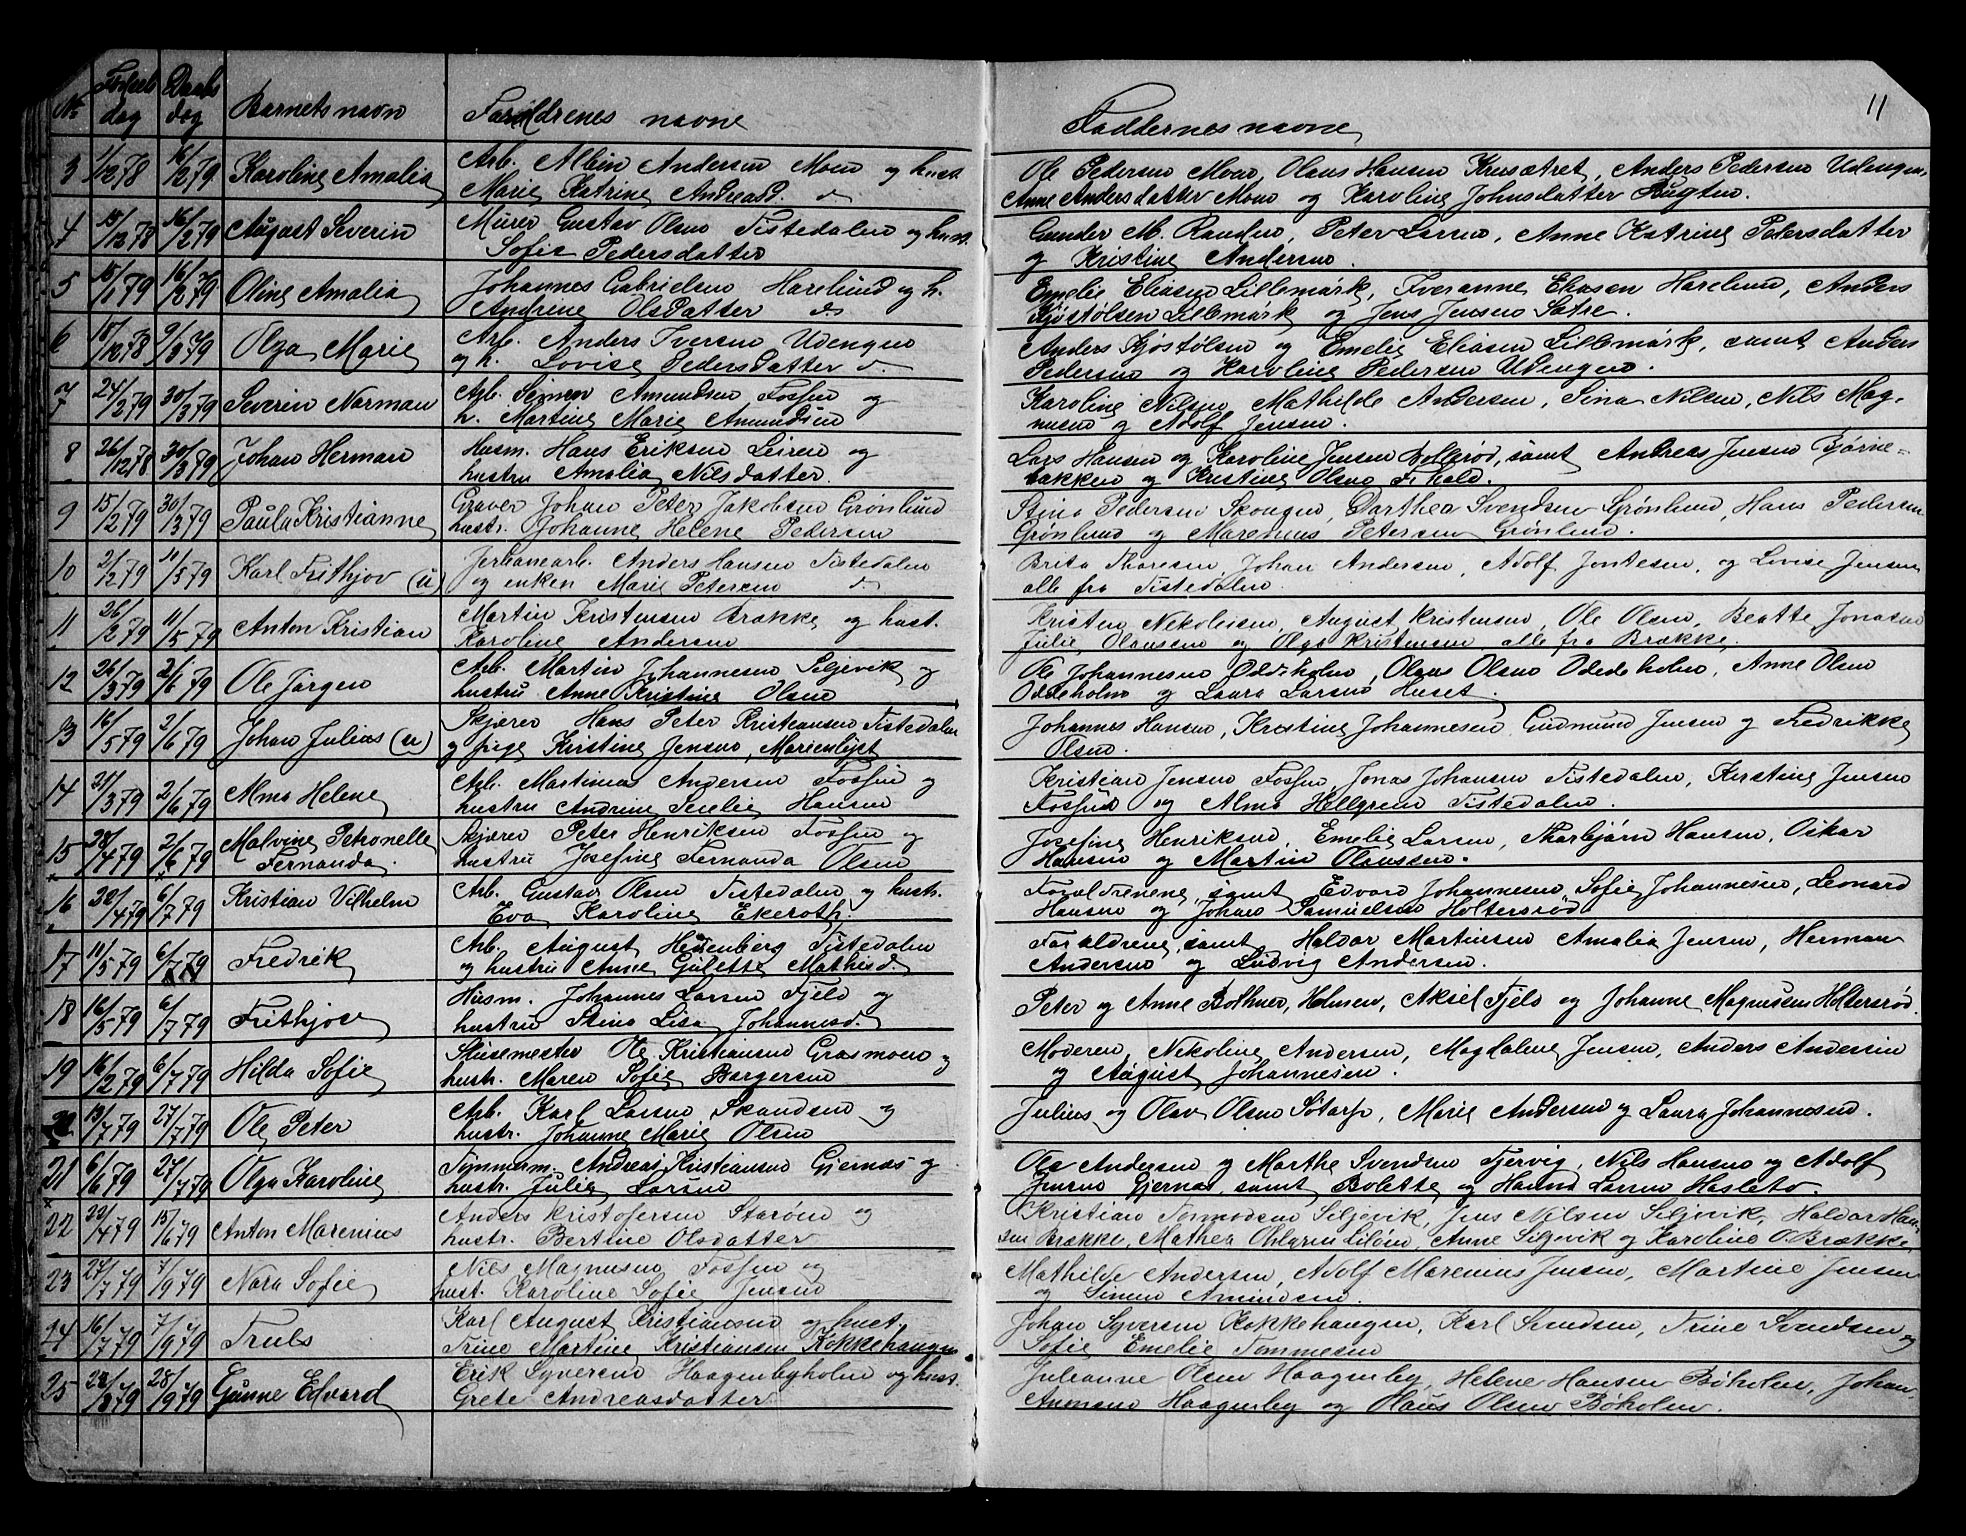 11
No Fødsels dag Daabs dag Barnets navn Forældrenes navne Faddernes navne
3 1/12 78 16/2 79 Karoline Amalia Arb. Albin Andersen Moen og hust.
Marie Katrine Andreasd. do
Ole Pedersen Moen, Olaus Hansen Krusætret, Anders Pedersen Udengen,
Anne Andersdatter Moen og Karoline Johnsdatter
4 15/12 78 16/2 79 August Severin Murer Gustav Olsen Tistedalen og hust.
Sofie Pedersdatter
Gunder M. Randen, Peter Larsen, Anne Katrine Pedersdatter
og Kristine Andersen.
5 15/1 79 16/2 79 Oline Amalia Johannes Gabrielsen Harelund og h.
Andrine Olsdatter do
Emelie Eliasen Lillemark, Iveranne Eliasen Harelund, Anders
Kjøstølsen Lillemark og Jens Jensen Sætre.
6 18/12 78 9/3 79 Olga Marie Arb. Anders Iversen Udengen
og h. Lovise Pedersdatter do.
Anders Kjøstølsen og Emelie Eliasen Lillemark, samt Anders
Pedersen og Karoline Pedersen Udengen.
7 24/2 79 30/3 79 Severin Norman Arb. Simen Amundsen Fossen og
h. Martine Marie Amundsen
Karoline Nilsen, Mathilde Andersen, Sina Nilsen, Nils Mag-
nusen og Adolf Jensen.
8 26/12 78 30/3 79 Johan Herman Husm. Hans Eriksen Leiren og
hustru Amalia Nilsdatter.
Lars Hansen og Karoline Jensen Bollerød, samt Andreas Jensen Bjørne-
bakken og Kristine Olsen Fjeld.
9 15/2 79 30/3 79 Paula Kristianne Graver Johan Peter Jakobsen Grønlund
hustr. Johanne Helene Pedersen
Stina Pedersen Skougen, Darthea Svendsen Grønlund, Hans Pedersen
Grønlund og Marenius Petersen Grønlund.
10 2/2 79 11/5 79 Karl Frithjov (u) Jerbanearb. Anders Hansen Tistedalen
og enken Marie Petersen do
Brita Thoresen, Johan Andersen, Adolf Jontesen, og Lovise Jensen
alle fra Tistedalen.
11 26/2 79 11/5 79 Anton Kristian Martin Kristensen Brække og hust.
Karoline Andersen
Kristen Nikolaisen, August Kristensen, Ole Olsen, Beatte Jonasen
Julie Olausen og Olga Kristensen alle fra Brække.
12 26/3 79 2/6 79 Ole Jørgen Arb. Martin Johannesen Siljevik og
hustru Anne Kristine Olsen
Ole Johannesen Oddeholm, Olaus Olsen Oddeholm, Anne Olsen
Oddeholm og Laura Larsen Huset.
13 16/5 79 2/6 79 Johan Julius (u) Skjærer Hans Peter Kristiansen Tistedalen
og pige Kirstine Jensen, Marienlyst
Johannes Hansen, Kristine Johannesen, Gudmund Jensen og Fredrikke
Olsen.
14 21/3 79 2/6 79 Alma Helene Arb. Martinius Andersen Fossen og
hustru Andrine Hansen
Kristian Jensen Fossen, Jonas Johansen Tistedalen, Kirstine Jensen
Fossen og Alma Hellgren Tistedalen.
15 28/4 79 2/6 79 Malvine Petronelle
Fernanda.
Skjærer Peter Henriksen Fossen og
hustru Josefine Fernanda Olsen
Josefine Henriksen, Emelie Larsen, Thorbjørn Hansen, Oskar
Hansen og Martin Olaussen.
16 22/4 79 6/7 79 Kristian Vilhelm Arb. Gustav Olsen Tistedalen og hustr.
Eva Karoline Ekeroth.
Forældrenene, samt Edvard Johannesen, Sofie Johannesen, Leonard
Hansen og Johan Samuelsen Holtersrød
17 11/5 79 6/7 79 Fredrik Arb. August Hedenberg Tistedalen
og hustru Anne Gulette Mathisd.
Forældrene, samt Haldor Martinsen Amalia Jensen, Herman
Andersen og Ludvig Andersen.
18 16/5 79 6/7 79 Frithjof Husm. Johannes Larsen Fjeld og
hustru Stina Lisa Johannesd.
Peter og Anne Bothner, Holmen, Aksel Fjeld og Johanne Magnussen Holtersrød.
19 16/2 79 6/7 79 Hilda Sofie Slusemester Ole Kristiansen Grasmoen og
hustr. Maren Sofie Borgersen
Moderen, Nikoline Andersen, Magdalene Jensen, Anders Andersen
og August Johannesen.
20 13/7 79 27/7 79 Ole Peter Arb. Karl Larsen Skandsen og
hustr. Johanne Marie Olsen
Julius og Olav Olsen Sotorp, Marie Andersen og Laura Johannesen.
21 6/6 79 27/7 79 Olga Karoline Tømmerm. Andreas Kristiansen Gjernæs og
hustr. Julie Larsen
Ole Andersen og Marthe Svendsen Tjervig, Nils Hansen og Adolf
Jensen Gjernæs, samt Bolette og Hanna Larsen Hasleto.
22 22/4 79 15/6 79 Anton Marenius Anders Kristofersen Storøen og
hustr. Bertine Olsdatter
Kristian Tormodsen Siljevik, Jens Nilsen Siljevik, Haldor Han-
sen Brække, Mathea Ohlgren Liløen, Anne Siljevik og Karoline O. Brække
23 27/7 79 7/9 79 Nora Sofie Nils Magnusen Fossen og
hust. Karoline Sofie Jensen
Mathilde Andersen, Adolf Marenius Jensen, Martine Jensen
og Simen Amundsen.
24 16/7 79 7/9 79 Truls Karl August Kristiansen og hust.
Trine Martine Kristiansen Kokkehaugen
Johan Syversen Kokkehaugen, Karl Svendsen, Trine Svendsen og
Sofie Emelie Tommesen
25 22/8 79 28/9 79 Gunne Edvard Erik Syversen Haagenbyholm og hust.
Grete Andreasdatter
Julianne Olsen Haagenby, Helene Hansen Bøholen, Johan
Haagenby og Olaus Olsen Bøholen.